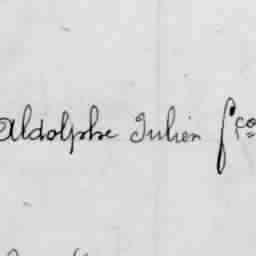 Aldolphe Julien fco